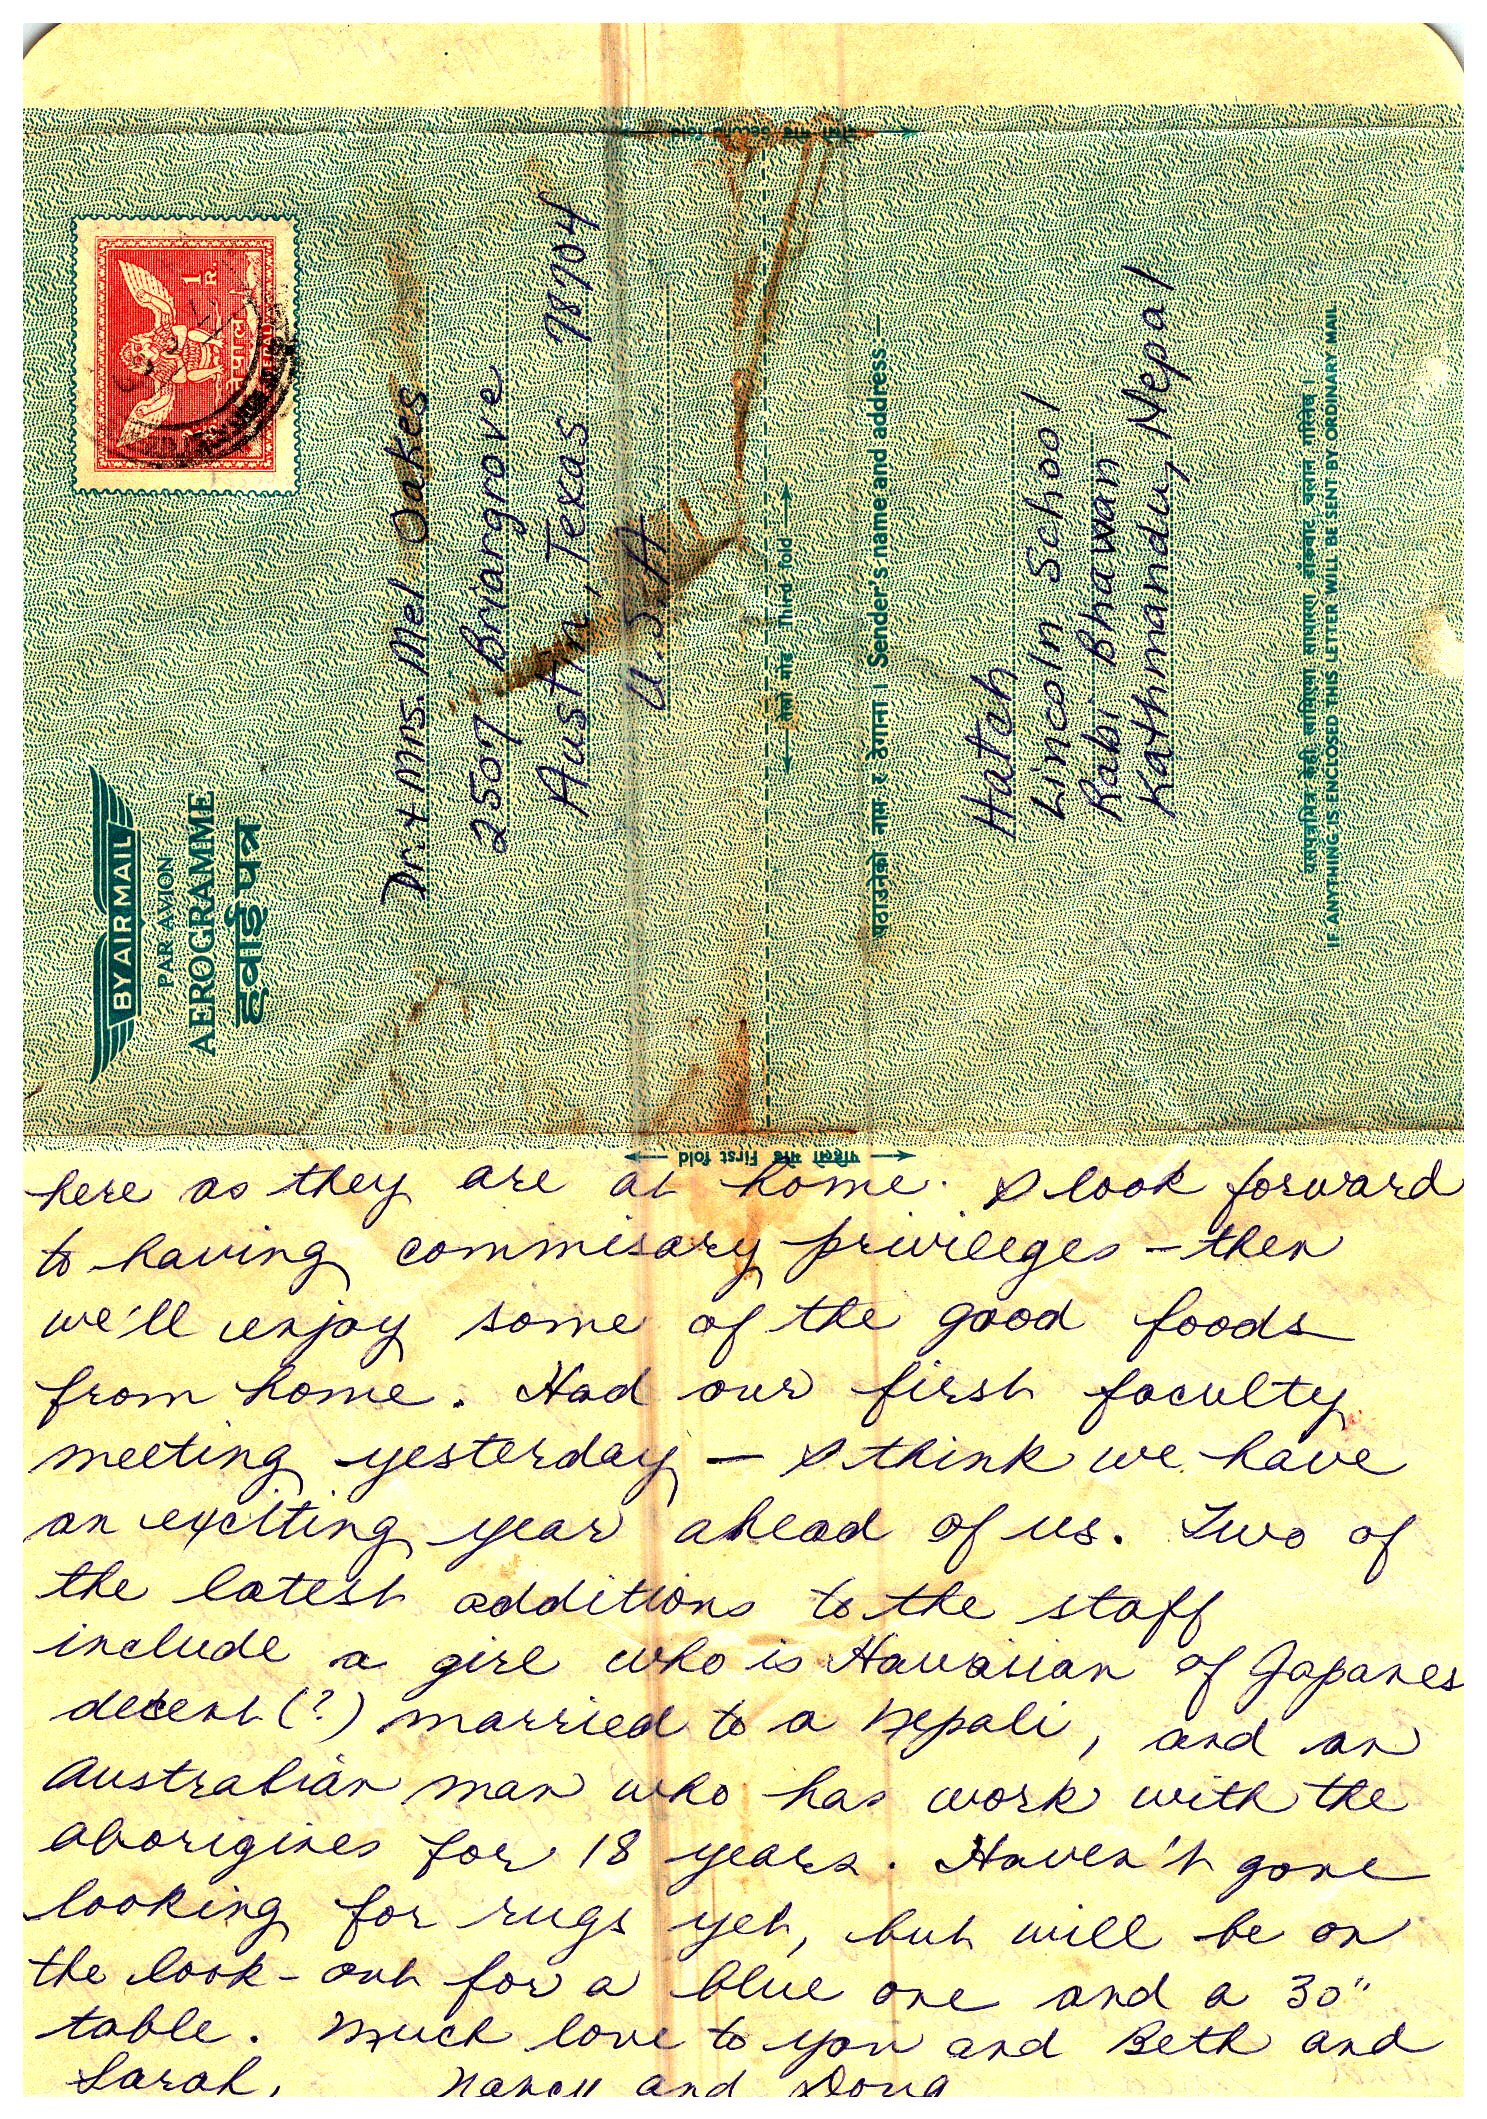 BY AIR MAIL
PAR AVION
AEROGRAMME
हवाई पत्र
1
R.
नेपाल
NEPAL
Dr. + Mrs. Mel Oakes
2507 Briargrove
Austin, Texas 78704
U.S.A
दोस्रो मोड Second fold
तेस्रो मोड Third fold
पठाउनेको नाम र ठेगाना । Sender's name and address.—
Hatch
Lincoln School
Rabi Bhawan
Kathmandu, Nepal
यसपत्रभित्र केही साधारण चलान गरिनेछ ।
IF ANYTHING IS ENCLOSED THIS LETTER WILL BE SENT BY ORDINARY MAIL.
पहिलो मोड First fold
here as they are at home. I look forward
to having commisary privileges – then
we'll enjoy some of the good foods
from home. Had our first faculty
meeting yesterday – I think we have
an exciting year ahead of us. Two of
the latest additions to the staff
include a girl who is Hawaiian of Japanes
decent (?) married to a Nepali, and an
Australian man who has work with the
aborigines for 18 years. Haven't gone
looking for rugs yet, but will be on
the look-out for a blue one and a 30"
table. Much love to you and Beth and
Sarah, Nancy and Doug